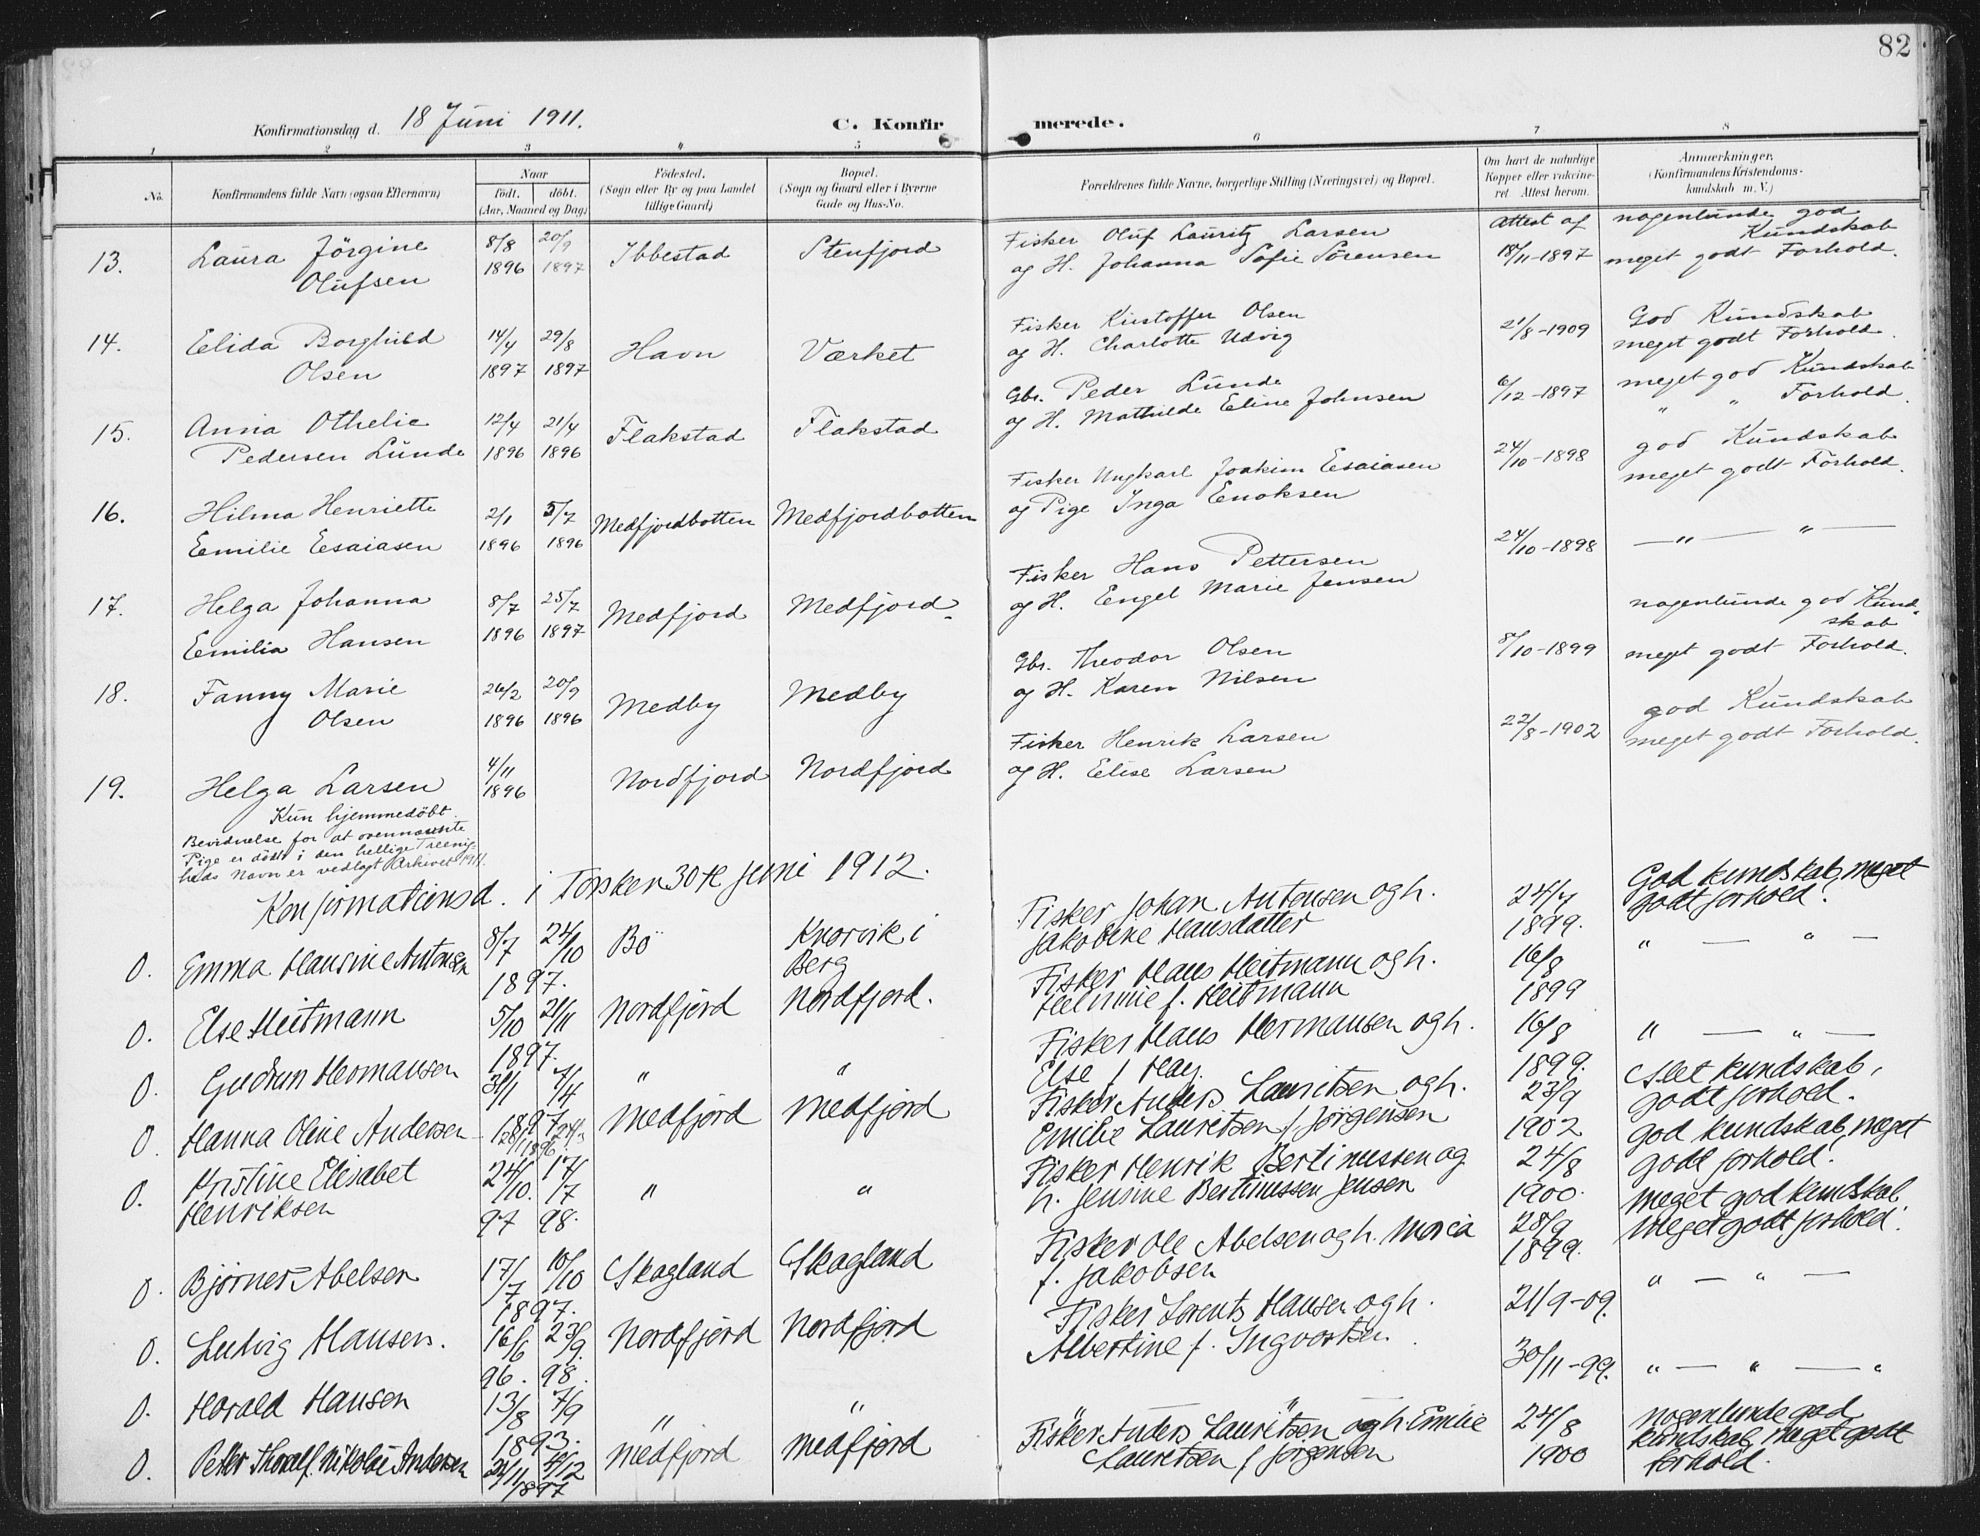 82
Konfirmationsdag d. 18 Juni 1911. C. Konfirmerede.
1 2 3 4 5 6 7 8
No. Konfirmandens fulde Navn (ogsaa Efternavn) Naar födt. döbt. (Aar, Maaned og Dag) Födested. (Sogn eller By og paa Landet tillige Gaard) Bopæl. (Sogn og Gaard eller i Byerne Gade og Hus-No. Forældrenes fulde Navne, borgerlige Stilling (Næringsvei) og Bopæl. Om havt de naturlige Kopper eller vaccineret. Attest herom. Anmærkninger. (Konfirmandens Kristendomskundskab m. V.)
13. Laura Jörgine Olufsen 8/8 1896 20/9 1897 Ibbestad Stenfjord Fisker Oluf Lauritz Larsen
og H. Johanna Sofie Sörensen Attest af 18/11-1897 nogenlunde god Kundskab
meget godt Forhold.
14. Elida Borghild Olsen 14/4 1897 29/8 1897 Havn Værket Fisker Kristoffer Olsen
og H. Charlotte Udvig 21/8-1909 God Kundskab
meget godt Forhold.
15. Anna Othelie
Pedersen Lunde 12/4 1896 21/4 1896 Flakstad Flakstad Gbr. Peder Lunde
og H. Mathilde Eline Johnsen 6/12-1897 meget god Kundskab
" " Forhold.
16. Hilma Henriette
Emilie Esaiasen 2/1 1896 5/7 1896 Medfjordbotten Medfjordbotten Fisker Ungkarl Joakim Esaiasen
og Pige Inga Enoksen 24/10-1898 god Kundskab
meget godt Forhold.
17. Helga Johanna
Emilia Hansen 8/7 1896 25/7 1897 Medfjord Medfjord Fisker Hans Pettersen
og H. Engel Marie Jensen 24/10-1898 — " — " —
18. Fanny Marie
Olsen 26/2 1896 20/9 1896 Medby Medby Gbr. Theodor Olsen
og H. Karen Nilsen 8/10-1899 nogenlunde god Kundskab
meget godt Forhold.
19. Helga Larsen 4/11 1896 Nordfjord Nordfjord Fisker Henrik Larsen
og H. Elise Larsen 22/8-1902 god Kundskab
meget godt Forhold.
Kun hjemmedöbt.
Bevidnelse for at ovennævnte
Pige er döbt i den hellige Treenigheds
Navn er vedlagt Arkivet 1911.
Konfirmationsd. i Torsken 30te juni 1912.
0. Emma Hansine Antonsen 8/7 24/10 1897. Bö Knorvik i Berg Fisker Johan Antonsen og h.
Jakobine Hansdatter 24/7 1899. God kundskab, meget
godt forhold.
0. Else Heitmann 5/10 21/11 1897. Nordfjord Nordfjord. Fisker Hans Heitmann og h.
f. Heitmann 16/8 1899 " — " —
0. Gudrun Hermansen 31/1 7/4 1897 " " Fisker Hans Hermansen og h.
Else f. 16/8 1899. " — " —
0. Hanna Oline Andersen Medfjord Medfjord Fisker Anders Lauritsen og h.
Emilie Lauritsen f. Jørgensen 23/9 1902 Slet kundskab,
godt forhold.
0. Kristine Elisabet
Henriksen 24/10. 97 17/7 98. " " Fisker Henrik Bertinussen og
h. Jensine Bertinussen Jensen 24/8 1900. god kundskab, meget
godt forhold.
0. Bjørner Abelsen 17/7 10/10 1897. Skagland Skagland Fisker Ole Abelsen og h. Maria
f. Jakobsen 28/9 1899. meget god kundskab
meget godt forhold.
0. Ludvig Hansen. 16/6 96. 23/9. 98. Nordfjord Nordfjord Fisker Lorents Hansen og h.
Albertine f. Ingvartsen. 21/9-09. " — " —
0. Harald Hansen 13/8 7/9 1893. " " " — " 30/11-99. " — " — "
0. Petter Thoralf Nikolai Andersen 21/11 4/12 1897 Medfjord Medfjord Fisker Anders Lauritsen og h. Emilie
Lauritsen f. Jørgensen 24/8 1900 nogenlunde god
kundskab, meget godt
forhold.